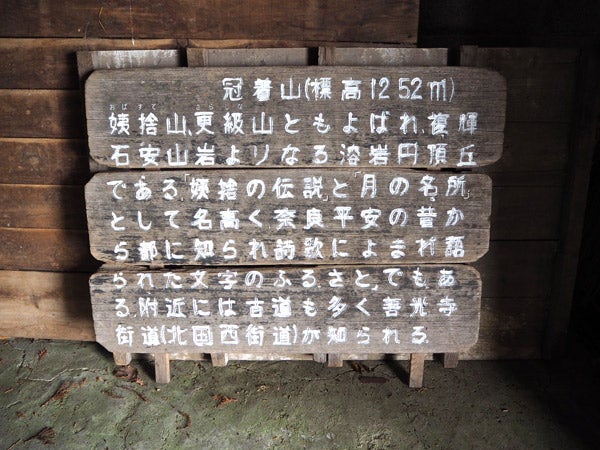 冠着山(標高1252m)
おばすて さらしな
姨捨山、更級山ともよばれ、複輝
石安山岩よりなる溶岩円頂丘
である。「姨捨の伝説」と「月の名所」
として名高く奈良平安の昔か
ら都に知られ詩歌によまれ語
られた文学のふるさと、でもあ
る。附近には古道も多く善光寺
街道(北国西街道)が知られる。